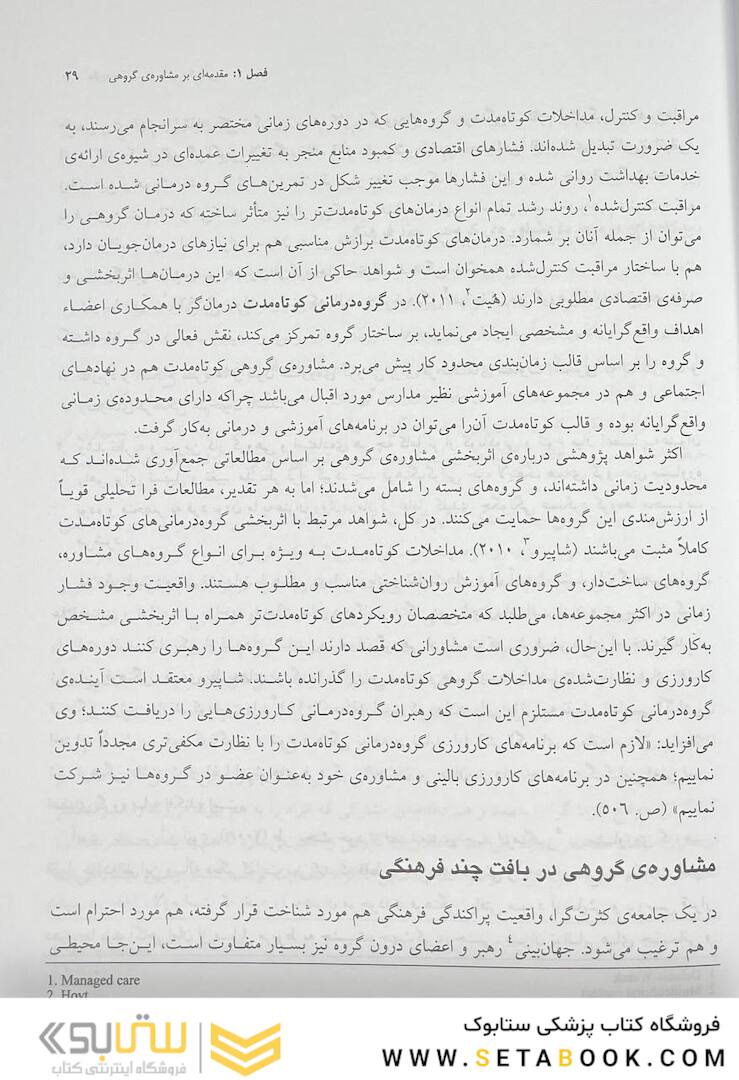 فصل ۱: مقدمه‌ای بر مشاوره‌ی گروهی ۲۹
مراقبت و کنترل، مداخلات کوتاه‌مدت و گروه‌هایی که در دوره‌های زمانی مختصر به سرانجام می‌رسند، به
یک ضرورت تبدیل شده‌اند. فشارهای اقتصادی و کمبود منابع منجر به تغییرات عمده‌ای در شیوه‌ی ارائه‌ی
خدمات بهداشت روانی شده و این فشارها موجب تغییر شکل در تمرین‌های گروه درمانی شده است.
مراقبت کنترل‌شده۱، روند رشد تمام انواع درمان‌های کوتاه‌مدت‌تر را نیز متأثر ساخته که درمان گروهی را
می‌توان از جمله آنان بر شمارد. درمان‌های کوتاه‌مدت برازش مناسبی هم برای نیازهای درمان‌جویان دارد،
هم با ساختار مراقبت کنترل‌شده همخوان است و شواهد حاکی از آن است که این درمان‌ها اثربخشی و
صرفه‌ی اقتصادی مطلوبی دارند (هُیت۲، ۲۰۱۱). در گروه‌درمانی کوتاه‌مدت درمان‌گر با همکاری اعضاء
اهداف واقع‌گرایانه و مشخصی ایجاد می‌نماید، بر ساختار گروه تمرکز می‌کند، نقش فعالی در گروه داشته
و گروه را بر اساس قالب زمان‌بندی محدود کار پیش می‌برد. مشاوره‌ی گروهی کوتاه‌مدت هم در نهادهای
اجتماعی و هم در مجموعه‌های آموزشی نظیر مدارس مورد اقبال می‌باشد چراکه دارای محدوده‌ی زمانی
واقع‌گرایانه بوده و قالب کوتاه‌مدت آن‌را می‌توان در برنامه‌های آموزشی و درمانی به‌کار گرفت.
اکثر شواهد پژوهشی درباره‌ی اثربخشی مشاوره‌ی گروهی بر اساس مطالعاتی جمع‌آوری شده‌اند که
محدودیت زمانی داشته‌اند، و گروه‌های بسته را شامل می‌شدند؛ اما به هر تقدیر، مطالعات فرا تحلیلی قویاً
از ارزش‌مندی این گروه‌ها حمایت می‌کنند. در کل، شواهد مرتبط با اثربخشی گروه‌درمانی‌های کوتاه‌مدت
کاملاً مثبت می‌باشند (شاپیرو۳، ۲۰۱۰). مداخلات کوتاه‌مدت به ویژه برای انواع گروه‌های مشاوره،
گروه‌های ساخت‌دار، و گروه‌های آموزش روان‌شناختی مناسب و مطلوب هستند. واقعیت وجود فشار
زمانی در اکثر مجموعه‌ها، می‌طلبد که متخصصان رویکردهای کوتاه‌مدت‌تر همراه با اثربخشی مشخص
به‌کار گیرند. با این‌حال، ضروری است مشاورانی که قصد دارند این گروه‌ها را رهبری کنند دوره‌های
کارورزی و نظارت‌شده‌ی مداخلات گروهی کوتاه‌مدت را گذرانده باشند. شاپیرو معتقد است آینده‌ی
گروه‌درمانی کوتاه‌مدت مستلزم این است که رهبران گروه‌درمانی کارورزی‌هایی را دریافت کنند؛ وی
می‌افزاید: «لازم است که برنامه‌های کارورزی گروه‌درمانی کوتاه‌مدت را با نظارت مکفی‌تری مجدداً تدوین
نماییم؛ همچنین در برنامه‌های کارورزی بالینی و مشاوره‌ی خود به‌عنوان عضو در گروه‌ها نیز شرکت
نماییم» (ص. ۵۰۶).
مشاوره‌ی گروهی در بافت چند فرهنگی
در یک جامعه‌ی کثرت‌گرا، واقعیت پراکندگی فرهنگی هم مورد شناخت قرار گرفته، هم مورد احترام است
و هم ترغیب می‌شود. جهان‌بینی۴ رهبر و اعضای درون گروه نیز بسیار متفاوت است، این‌جا محیطی
1. Managed care
2. Hoyt
فروشگاه کتاب پزشکی ستابوک
WWW.SETABOOK.COM
ستابوک
فروشگاه اینترنتی کتاب